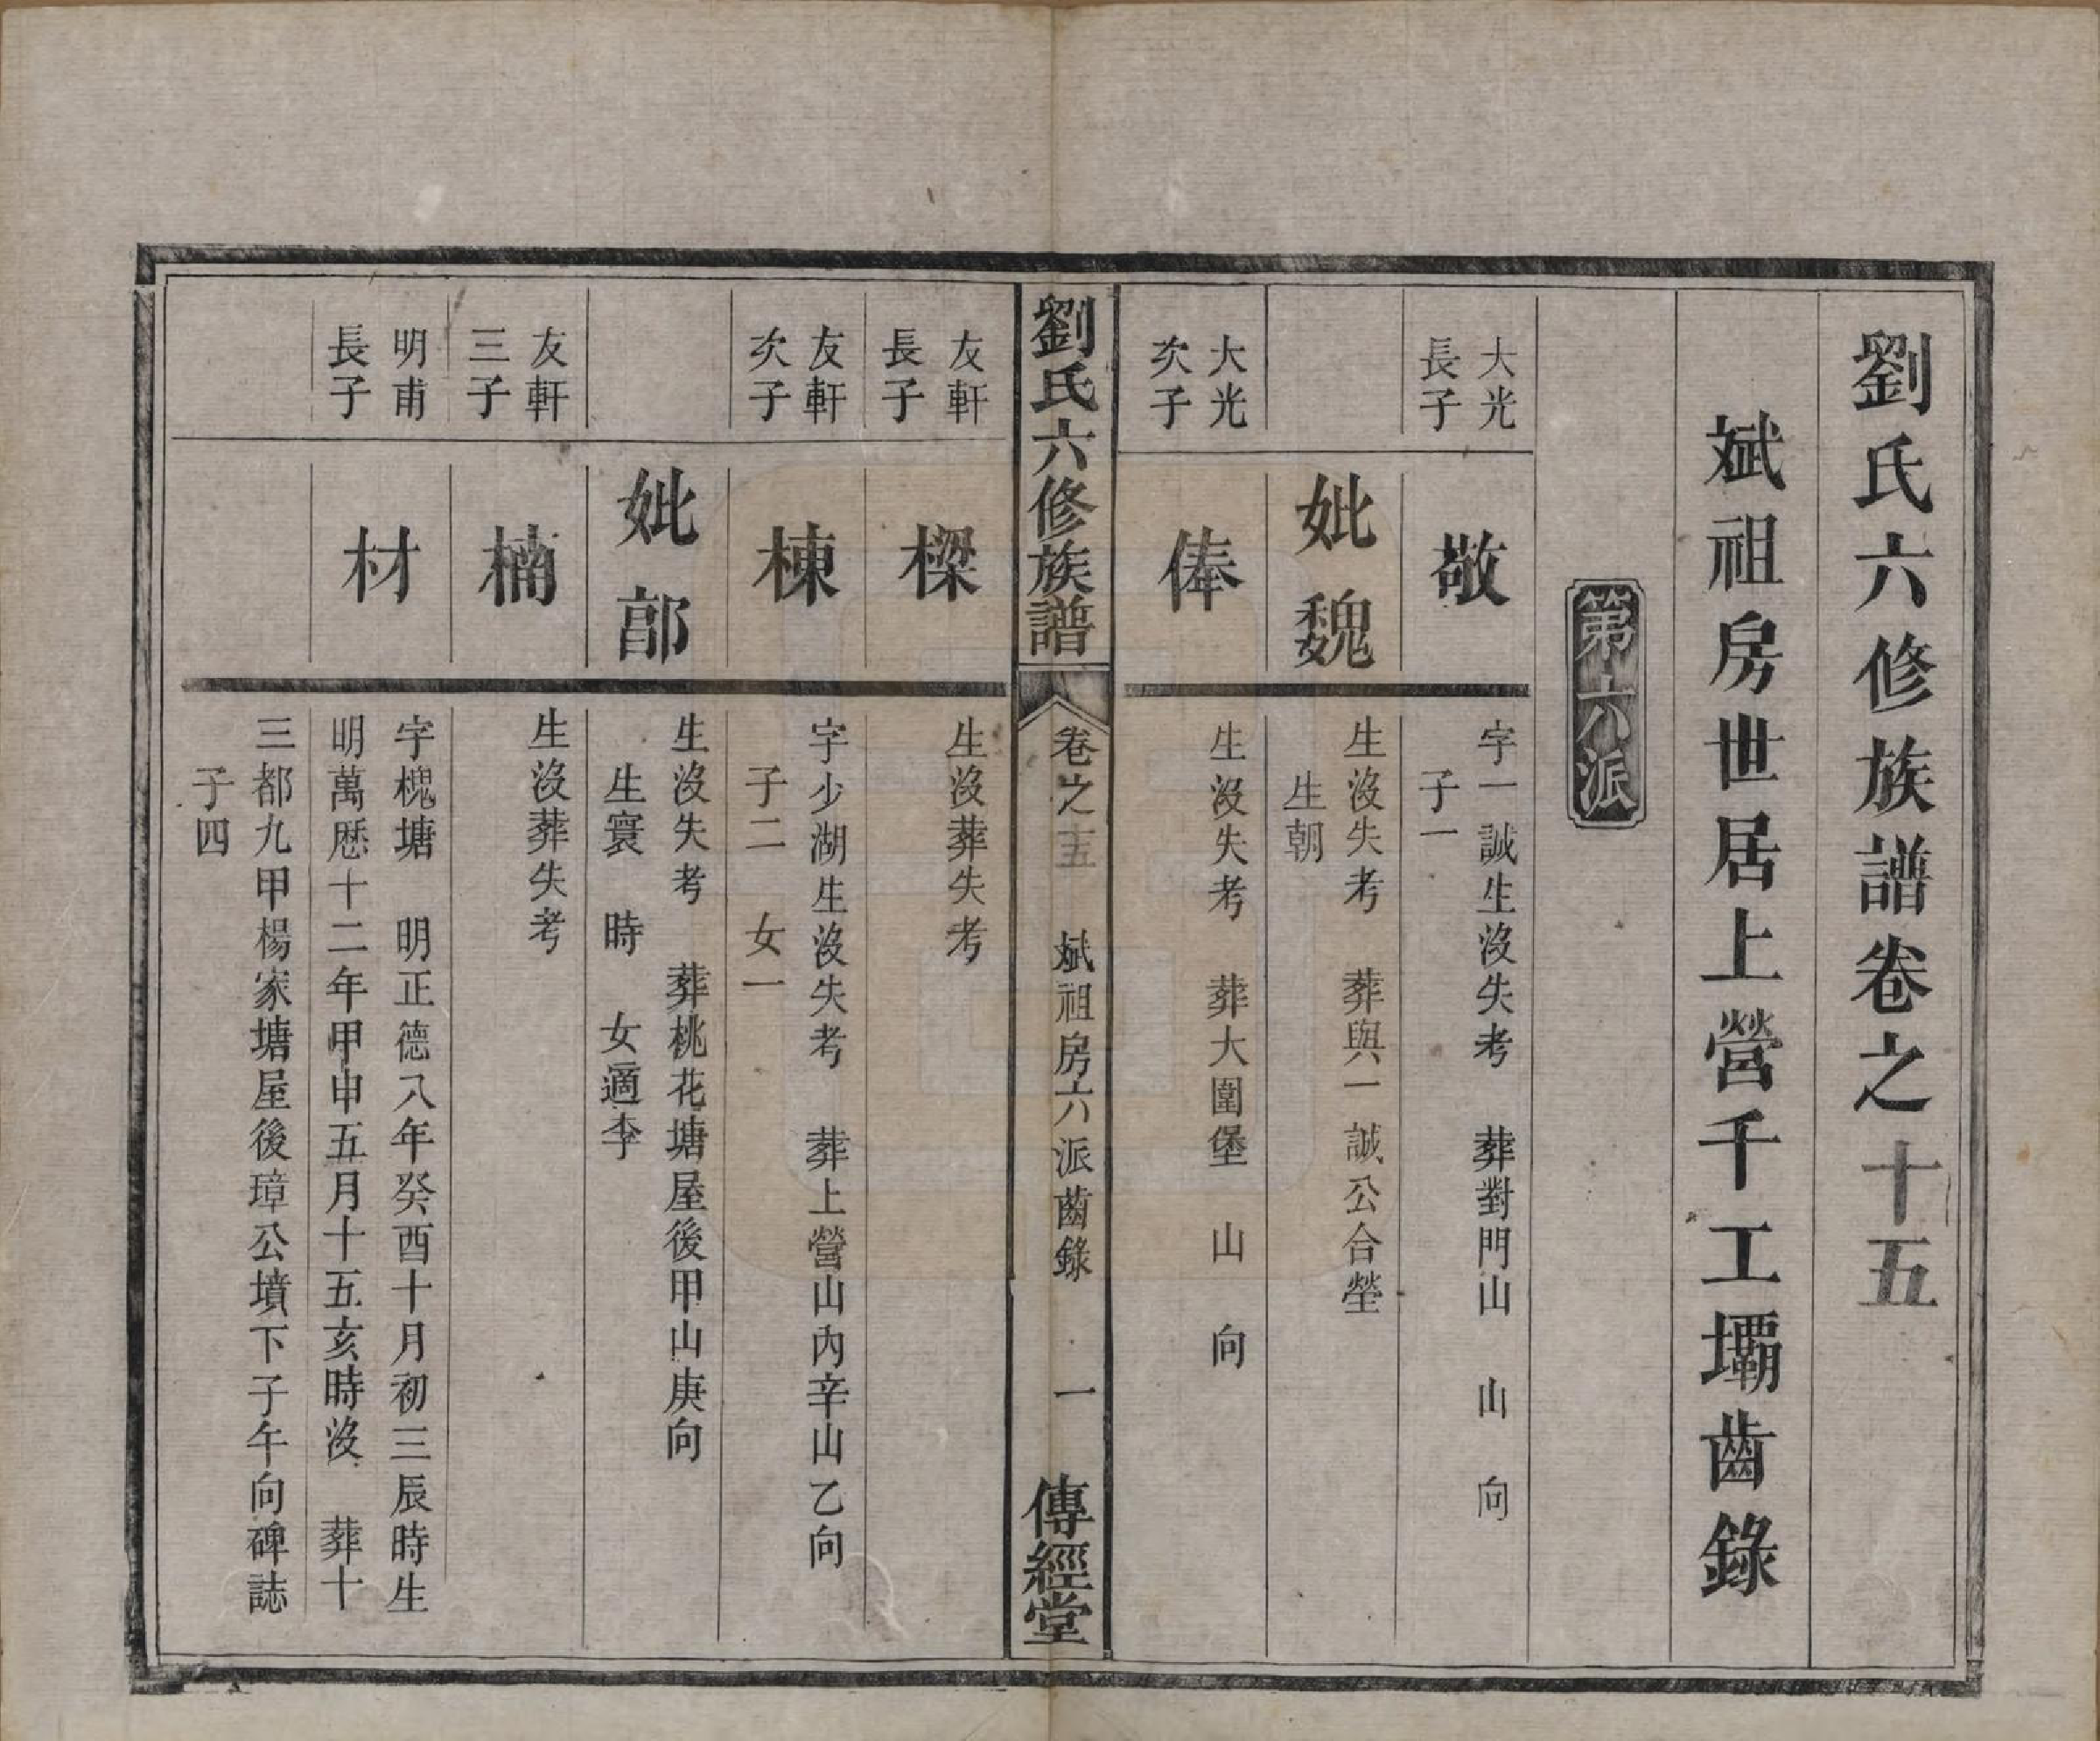 劉氏六修族譜卷之十五
斌祖房世居上營千工壩齒錄
第六派
大光
長子
敬
字一誠生沒失考　葬對門山　山　向
子一
妣魏
生沒失考　葬與一誠公合塋
生朝
大光
次子
俸
生沒失考　葬大圍堡　山　向
劉氏六修族譜
卷之十五　斌祖房六派齒錄　一
傳經堂
友軒
長子
樑
生沒葬失考
友軒
次子
棟
字少湖生沒失考　葬上營山內辛山乙向
子二　女一
妣郭
生沒失考　葬桃花塘屋後甲山庚向
生寰　時　女適李
友軒
三子
楠
生沒葬失考
明甫
長子
材
字槐塘　明正德八年癸酉十月初三辰時生
明萬歷十二年甲申五月十五亥時沒　葬十
三都九甲楊家塘屋後璋公墳下子午向碑誌
子四